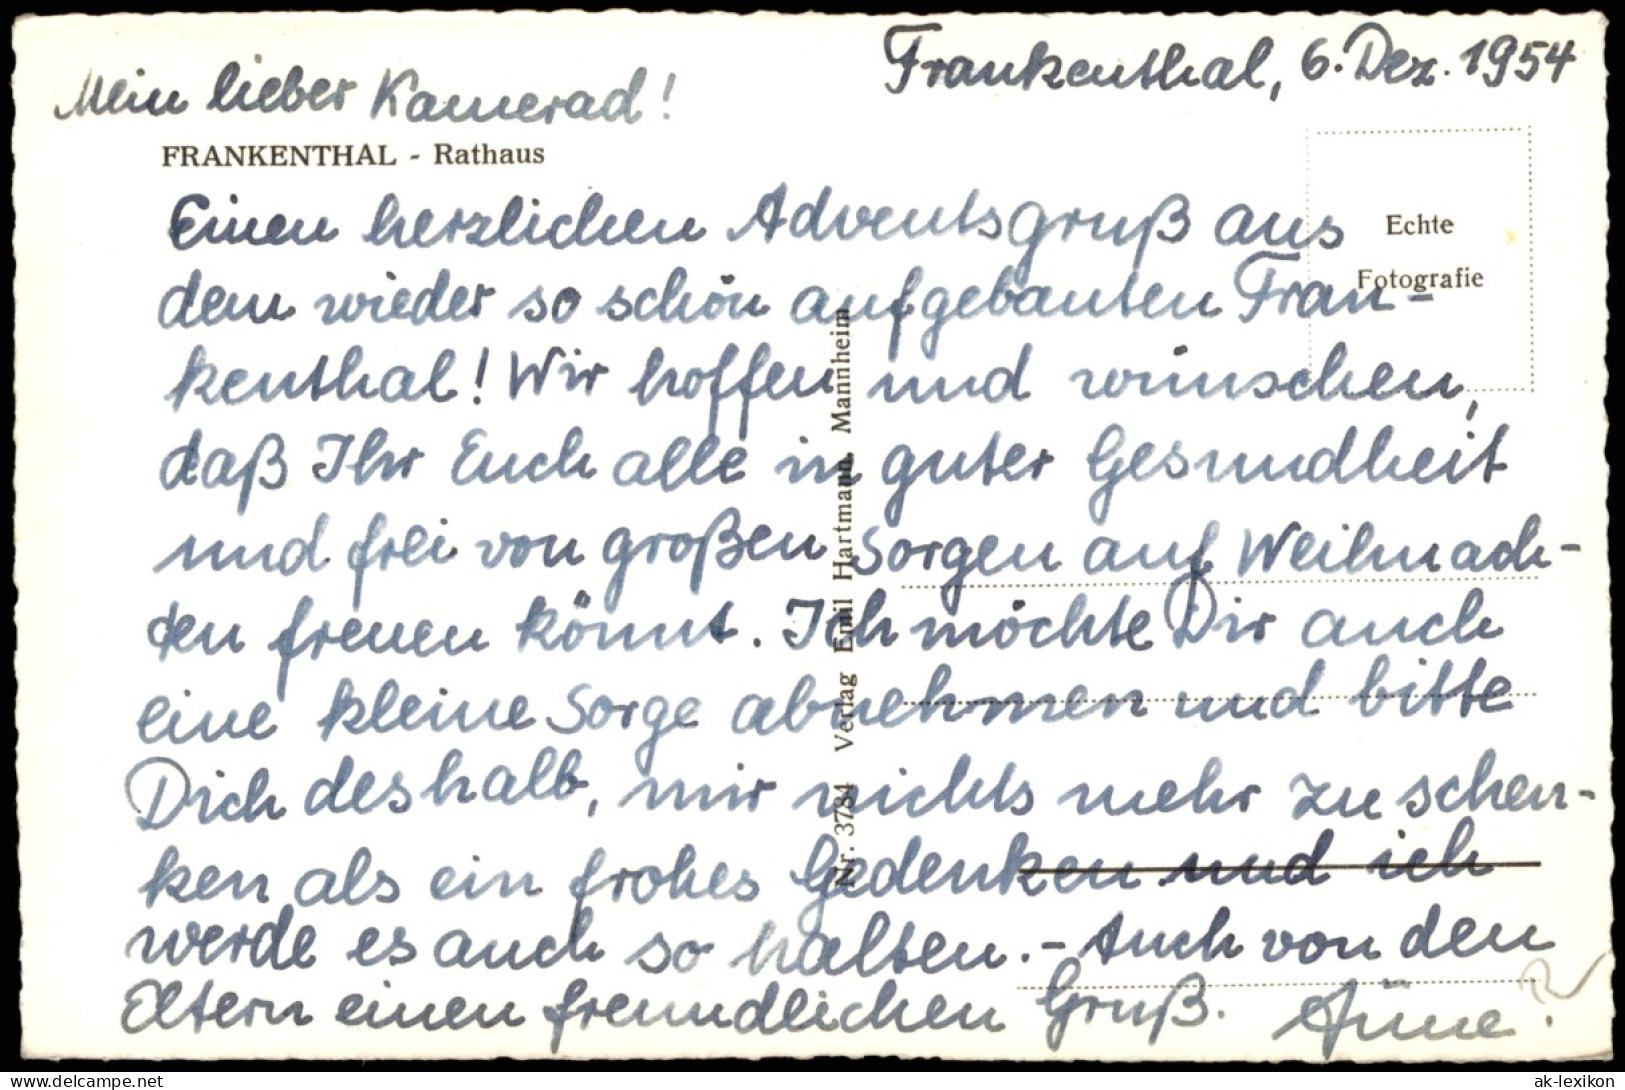 Frankenthal, 6. Dez. 1954
Mein lieber Kamerad!
FRANKENTHAL - Rathaus
Echte
Fotografie
Einen herzlichen Adventsgruß aus
dem wieder so schön aufgebauten Fran-
kenthal! Wir hoffen und wünschen,
daß Ihr Euch alle in guter Gesundheit
und frei von großen Sorgen auf Weihnach-
ten freuen könnt. Ich möchte Dir auch
eine kleine Sorge abnehmen und bitte
Dich deshalb, mir nichts mehr zu schen-
ken als ein frohes Gedenken und ich
werde es auch so halten. - Auch von den
Eltern einen freundlichen Gruß.
Nr. 3734 Verlag Emil Hartmann, Mannheim
ak-lexikon
delcampe.net